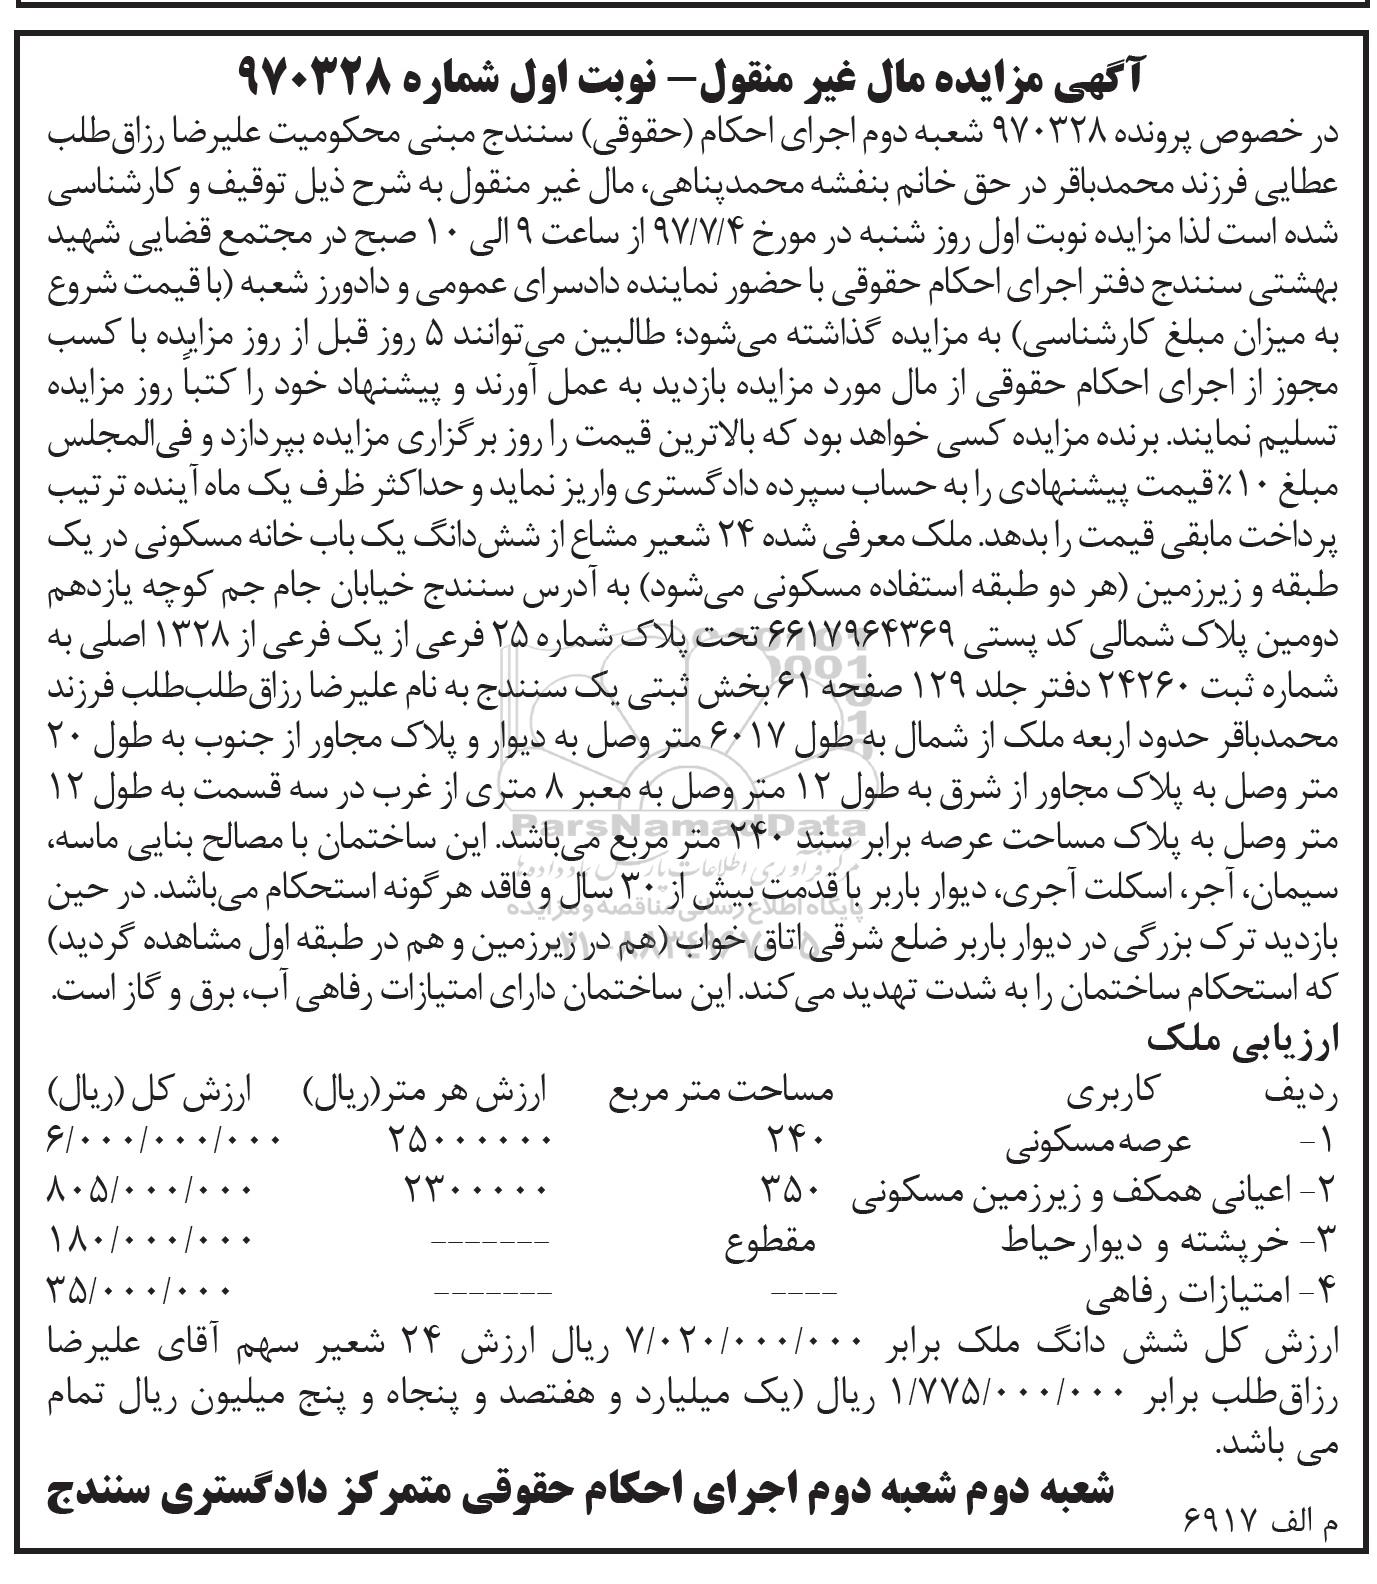 آگهی مزایده مال غیر منقول– نوبت اول شماره ۹۷۰۳۲۸
در خصوص پرونده ۹۷۰۳۲۸ شعبه دوم اجرای احکام (حقوقی) سنندج مبنی محکومیت علیرضا رزاق‌طلب
عطایی فرزند محمدباقر در حق خانم بنفشه محمدپناهی، مال غیر منقول به شرح ذیل توقیف و کارشناسی
شده است لذا مزایده نوبت اول روز شنبه در مورخ ۹۷/۷/۴ از ساعت ۹ الی ۱۰ صبح در مجتمع قضایی شهید
بهشتی سنندج دفتر اجرای احکام حقوقی با حضور نماینده دادسرای عمومی و دادورز شعبه (با قیمت شروع
به میزان مبلغ کارشناسی) به مزایده گذاشته می‌شود؛ طالبین می‌توانند ۵ روز قبل از روز مزایده با کسب
مجوز از اجرای احکام حقوقی از مال مورد مزایده بازدید به عمل آورند و پیشنهاد خود را کتباً روز مزایده
تسلیم نمایند. برنده مزایده کسی خواهد بود که بالاترین قیمت را روز برگزاری مزایده بپردازد و فی‌المجلس
مبلغ ۱۰٪ قیمت پیشنهادی را به حساب سپرده دادگستری واریز نماید و حداکثر ظرف یک ماه آینده ترتیب
پرداخت مابقی قیمت را بدهد. ملک معرفی شده ۲۴ شعیر مشاع از شش‌دانگ یک باب خانه مسکونی در یک
طبقه و زیرزمین (هر دو طبقه استفاده مسکونی می‌شود) به آدرس سنندج خیابان جام جم کوچه یازدهم
دومین پلاک شمالی کد پستی ۶۶۱۷۹۶۴۳۶۹ تحت پلاک شماره ۲۵ فرعی از یک فرعی از ۱۳۲۸ اصلی به
شماره ثبت ۲۴۲۶۰ دفتر جلد ۱۲۹ صفحه ۶۱ بخش ثبتی یک سنندج به نام علیرضا رزاق‌طلب‌طلب فرزند
محمدباقر حدود اربعه ملک از شمال به طول ۶۰۱۷ متر وصل به دیوار و پلاک مجاور از جنوب به طول ۲۰
متر وصل به پلاک مجاور از شرق به طول ۱۲ متر وصل به معبر ۸ متری از غرب در سه قسمت به طول ۱۲
متر وصل به پلاک مساحت عرصه برابر سند ۲۴۰ متر مربع می‌باشد. این ساختمان با مصالح بنایی ماسه،
سیمان، آجر، اسکلت آجری، دیوار باربر با قدمت بیش از ۳۰ سال و فاقد هرگونه استحکام می‌باشد. در حین
بازدید ترک بزرگی در دیوار باربر ضلع شرقی اتاق خواب (هم در زیرزمین و هم در طبقه اول مشاهده گردید)
که استحکام ساختمان را به شدت تهدید می‌کند. این ساختمان دارای امتیازات رفاهی آب، برق و گاز است.
ParsNamadData
پایگاه اطلاع رسانی مناقصه و مزایده
ارزیابی ملک
ردیف کاربری مساحت متر مربع ارزش هر متر(ریال) ارزش کل (ریال)
۱– عرصه مسکونی ۲۴۰ ۲۵۰۰۰۰۰۰ ۶/۰۰۰/۰۰۰/۰۰۰
۲– اعیانی همکف و زیرزمین مسکونی ۳۵۰ ۲۳۰۰۰۰۰ ۸۰۵/۰۰۰/۰۰۰
۳– خرپشته و دیوارحیاط مقطوع ------- ۱۸۰/۰۰۰/۰۰۰
۴– امتیازات رفاهی ---- ------- ۳۵/۰۰۰/۰۰۰
ارزش کل شش دانگ ملک برابر ۷/۰۲۰/۰۰۰/۰۰۰ ریال ارزش ۲۴ شعیر سهم آقای علیرضا
رزاق‌طلب برابر ۱/۷۷۵/۰۰۰/۰۰۰ ریال (یک میلیارد و هفتصد و پنجاه و پنج میلیون ریال تمام
می باشد.
شعبه دوم شعبه دوم اجرای احکام حقوقی متمرکز دادگستری سنندج
م الف ۶۹۱۷